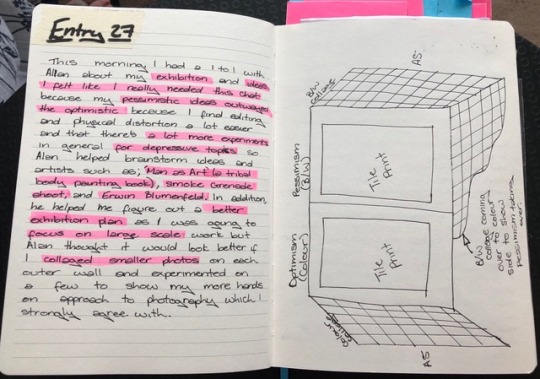 Entry 27
This morning I had a 1 to 1 with
Allan about my exhibition and ideas.
I felt like I really needed this chat
because my pessimistic ideas outways
the optimistic because I find editing
and physical distortion a lot easier
and that there's a lot more experiments
in general for depressive topics so
Alan helped brainstorm ideas and
artists such as; Man as Art (a tribal
body painting book), Smoke Grenade
shoot, and Erwin Blumenfeld. In addition,
he helped me figure out a better
exhibition plan as I was going to
focus on large scale work but
Alan thought it would look better if
I collaged smaller photos on each
outer wall and experimented on
a few to show my more hands
on approach to photography which I
strongly agree with.
A5
B/W
collage
Pessimism
(B/W)
Tile
Print
Optimism
(Colour)
Tile
Print
Colour
collage
A5
B/W
collage coming
over to colour
side to show
pessimism taking
over.